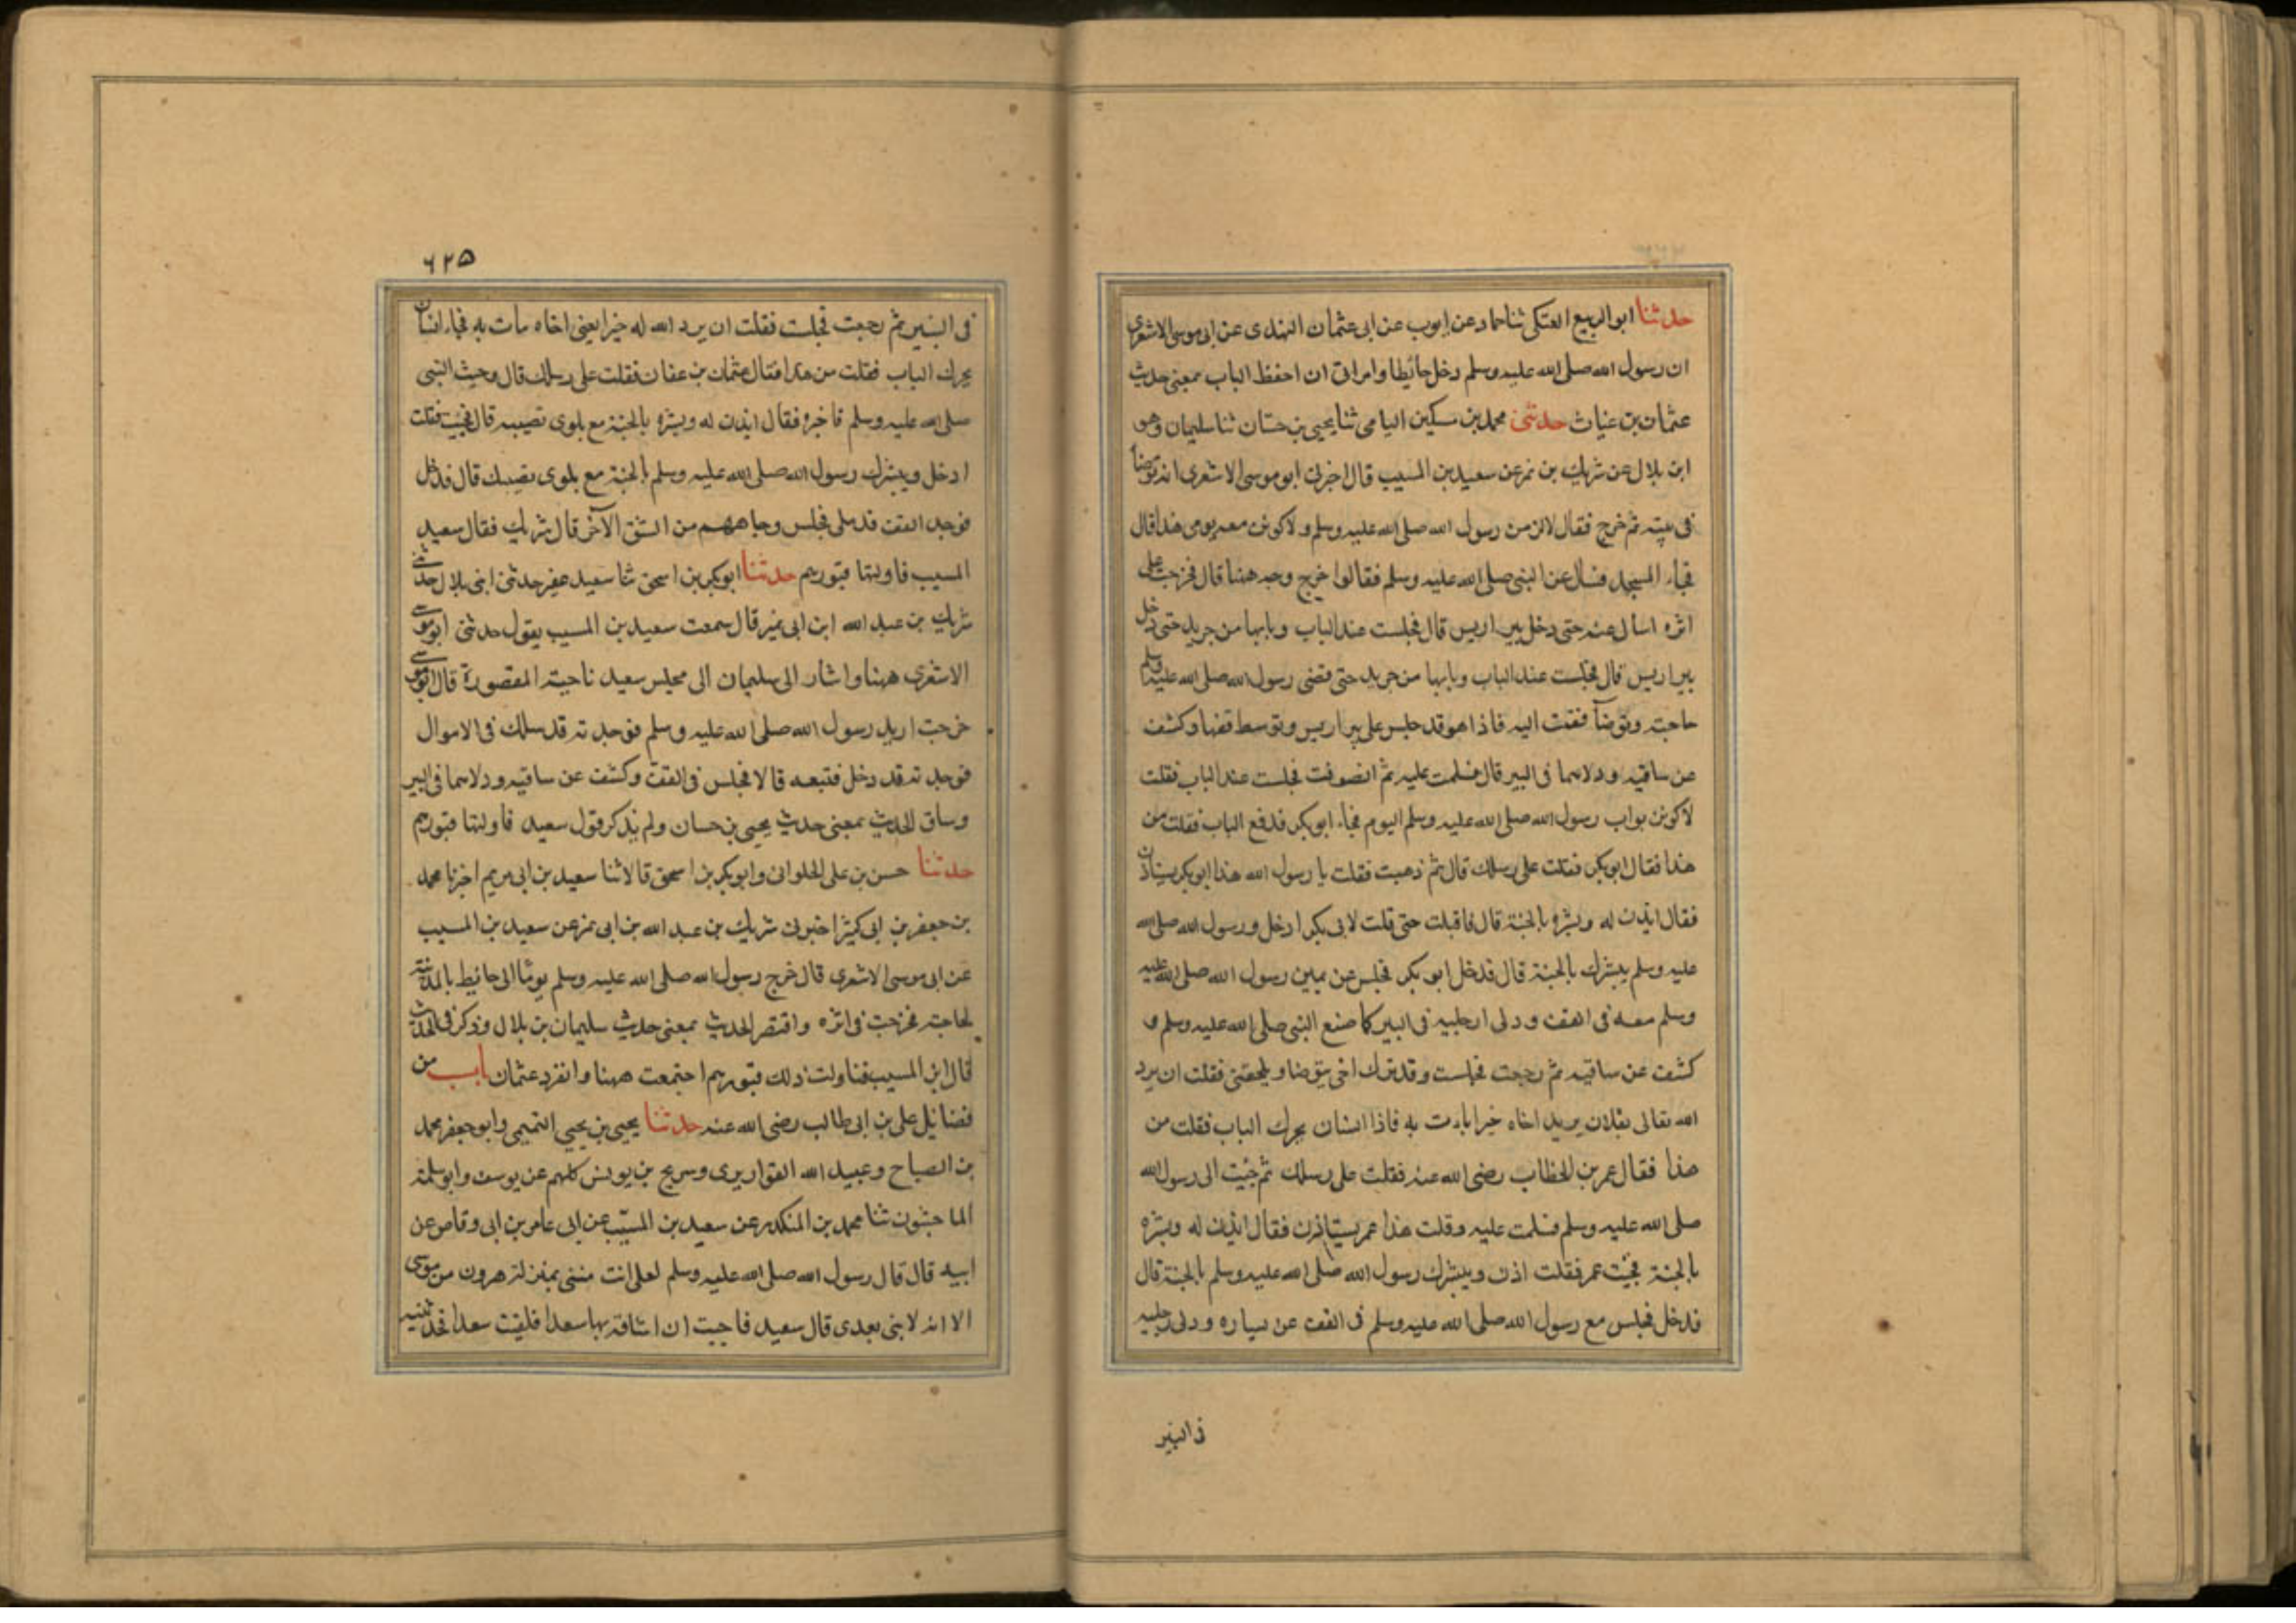 حدثنا ابو الربيع العتكى ثنا حماد عن ايوب عن ابى عثمان النهدى عن ابى موسى الاشعرى
ان رسول الله صلى الله عليه وسلم دخل حائطا وامرانى ان احفظ الباب بمعنى حديث
عثمان بن غياث حدثنى محمد بن مسكين اليامى ثنا يحيى بن حسان ثنا سليمان وهو
ابن بلال عن شريك بن نمر عن سعيد بن المسيب قال اخبرنى ابو موسى الاشعرى انه توضأ
فى بيته ثم خرج فقال لالزمن رسول الله صلى الله عليه وسلم ولاكونن معه يومى هذا قال
فجاء المسجد فسال عن النبى صلى الله عليه وسلم فقالوا خرج وجه ههنا قال فخرجت على
اثره اسأل عنه حتى دخل بير اريس قال فجلست عند الباب وبابها من جريد حتى دخل
بير اريس قال فجلست عند الباب وبابها من جريد حتى قضى رسول الله صلى الله عليه وسلم
حاجته وتوضأ فقمت اليه فاذا هو قد جلس على بير اريس وتوسط قفها وكشف
عن ساقيه ودلاهما فى البير قال فسلمت عليه ثم انصرفت فجلست عند الباب فقلت
لاكونن بواب رسول الله صلى الله عليه وسلم اليوم فجاء ابو بكر فدفع الباب فقلت من
هذا فقال ابو بكر فقلت على رسلك قال ثم ذهبت فقلت يا رسول الله هذا ابو بكر يستاذن
فقال ايذن له وبشره بالجنة قال فاقبلت حتى قلت لابى بكر ادخل ورسول الله صلى الله
عليه وسلم يبشرك بالجنة قال فدخل ابو بكر فجلس عن يمين رسول الله صلى الله عليه
وسلم معه فى القف ودلى ارجليه فى البير كما صنع النبى صلى الله عليه وسلم و
كشف عن ساقيه ثم رجعت فجلست وقد تركت اخى يتوضا ويلحقنى فقلت ان يرد
الله تعالى بفلان يريد اخاه خيرا يات به فاذا انسان يحرك الباب فقلت من
هذا فقال عمر بن الخطاب رضى الله عنه فقلت على رسلك ثم جئت الى رسول الله
صلى الله عليه وسلم فسلمت عليه وقلت هذا عمر يستاذن فقال ايذن له وبشره
بالجنة فجئت عمر فقلت اذن ويبشرك رسول الله صلى الله عليه وسلم بالجنة قال
فدخل فجلس مع رسول الله صلى الله عليه وسلم فى القف عن يساره ودلى رجليه
فى البير
٦٢٥
فى البير ثم رجعت فجلست فقلت ان يرد الله له خيرا يعنى اخاه يات به فجاء انسان
يحرك الباب فقلت من هذا فقال عثمان بن عفان فقلت على رسلك قال وجئت النبى
صلى الله عليه وسلم فاخبره فقال ايذن له وبشره بالجنة مع بلوى تصيبه قال فجئت فقلت
ادخل ويبشرك رسول الله صلى الله عليه وسلم بالجنة مع بلوى تصيبك قال فدخل
فوجد القف قد ملى فجلس وجاههم من الشق الآخر قال شريك فقال سعيد
المسيب فاولتها قبورهم حدثنا ابو بكر بن اسحق ثنا سعيد عفير حدثنى ابنى بلال حدثنى
شريك بن عبد الله ابن ابى نمير قال سمعت سعيد بن المسيب يقول حدثنى ابو موسى
الاشعرى ههنا واشار الى سليمان الى مجلس سعيد ناحية المقصورة قال ابو موسى
خرجت اريد رسول الله صلى الله عليه وسلم فوجدته قد سلك فى الاموال
فوجدته قد دخل فتبعه قالا فجلس فى القف وكشف عن ساقيه ودلاهما فى البير
وساق الحديث بمعنى حديث يحيى بن حسان ولم يذكر قول سعيد فاولتها قبورهم
حدثنا حسن بن على الحلوانى وابو بكر بن اسحق قالا ثنا سعيد بن ابى مريم اخبرنا محمد
بن جعفر بن ابى كثير اخبرنى شريك بن عبد الله بن ابى نمر عن سعيد بن المسيب
عن ابى موسى الاشعرى قال خرج رسول الله صلى الله عليه وسلم يوما الى حائط بالمدينة
لحاجته فخرجت فى اثره واقتصر الحديث بمعنى حديث سليمان بن بلال وذكر فى الحديث
قال ابن المسيب فتاولت ذلك قبورهم اجتمعت ههنا وانفرد عثمان باب من
فضائل على بن ابى طالب رضى الله عنه حدثنا يحيى بن يحيى التميمى وابو جعفر محمد
بن الصباح وعبيد الله القواريرى وسريج بن يونس كلهم عن يوسف وابو سلمة
الماجشون ثنا محمد بن المنكدر عن سعيد بن المسيب عن ابى عامر بن ابى وقاص عن
ابيه قال قال رسول الله صلى الله عليه وسلم لعلى انت منى بمنزلة هرون من موسى
الا انه لا نبى بعدى قال سعيد فاحببت ان اشافه بها سعدا فلقيت سعدا فحدثنيه